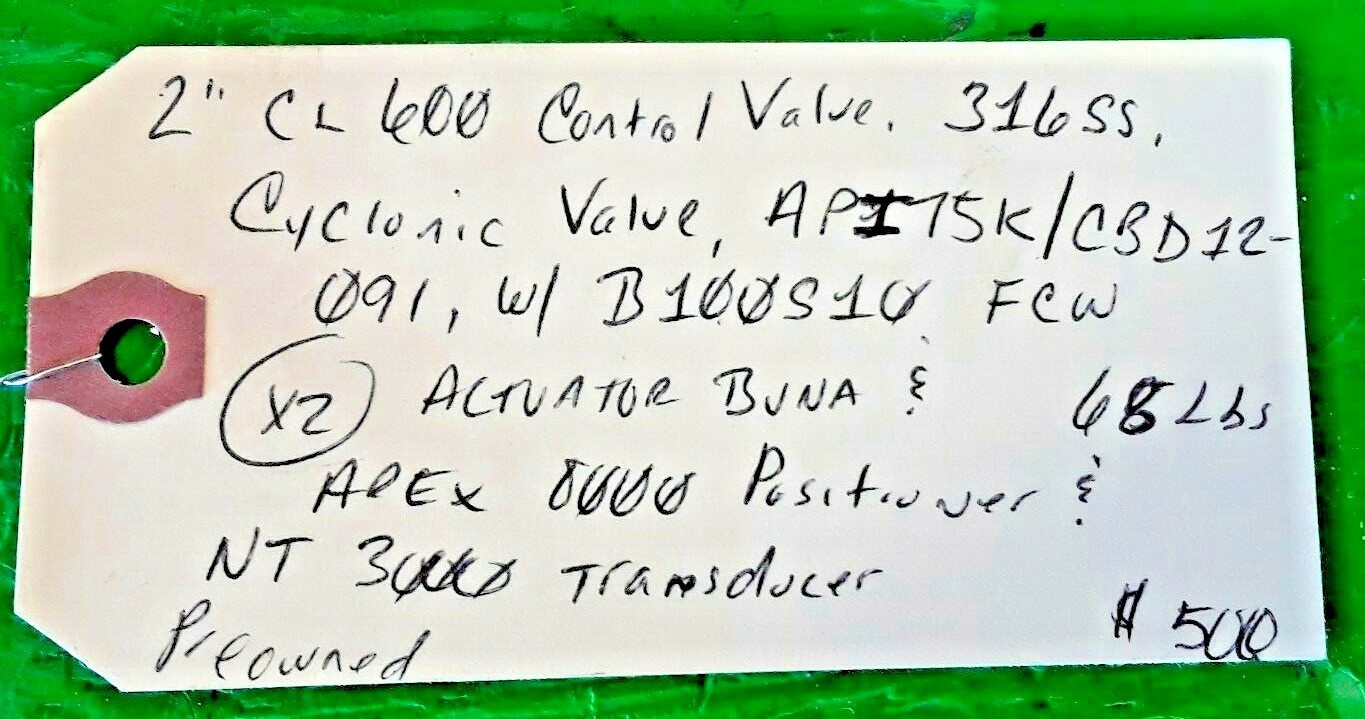 2" CL 600 Control Valve. 316SS,
Cyclonic Valve, API75K/CBD12-
091, w/ B100S10 FCW
X2 ACTUATOR BUNA & 68 Lbs
APEX 8000 Positioner &
NT 3000 Transducer
Preowned $ 500